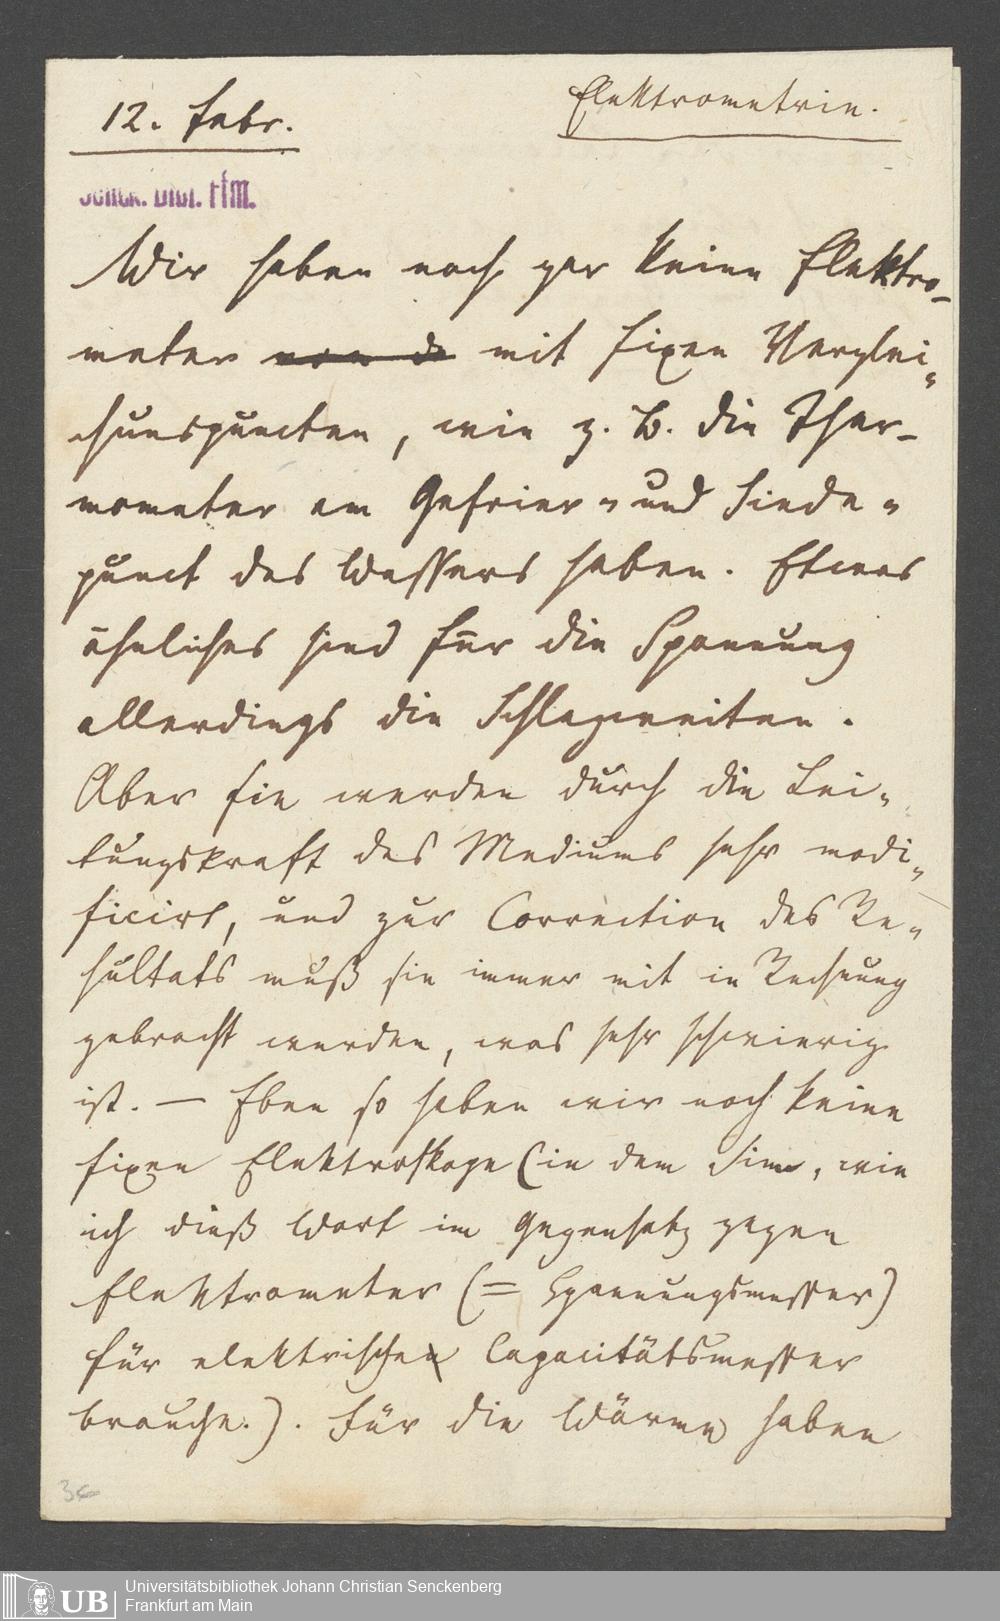 12. Febr.
Elektrometrie.
Senck. Bibl. Ffm.
Wir haben noch gar keine Elektro-
meter von de mit fixen Verglei-
chunspuncten, wie z. B. die Ther-
mometer am Gefrier- und Siede-
punct des Wassers haben. Etwas
ähnliches sind für die Spannung
allerdings die Schlagweiten.
Aber sie werden durch die Lei-
tungskraft des Mediums sehr modi-
ficirt, und zur Correction des Re-
sultats muß sie immer mit in Rechnung
gebracht werden, was sehr schwierig
ist. — Eben so haben wir noch keine
fixen Elektroskope (in dem Sinn, wie
ich dieß Wort im Gegensatz gegen
Elektrometer (= Spannungsmesser)
für elektrische Capacitätsmesser
brauche.). Für die Wärme haben
UB
Universitätsbibliothek Johann Christian Senckenberg
Frankfurt am Main